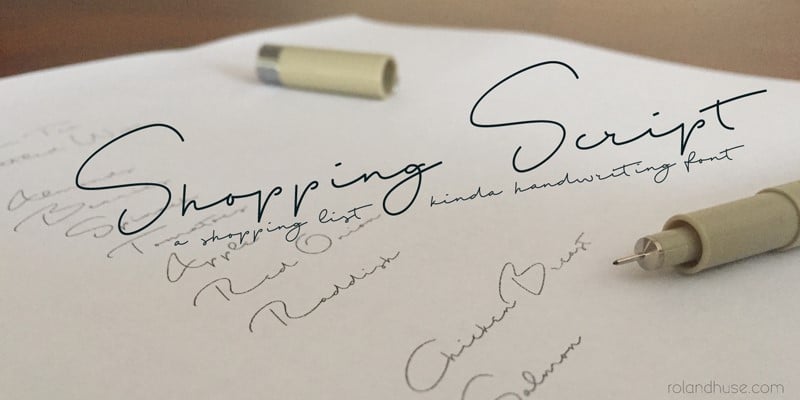 Shopping Script
a shopping list kinda handwriting font
Tomatoes
Apple
Red Onion
Raddish
Chicken Breast
Salmon
rolandhuse.com